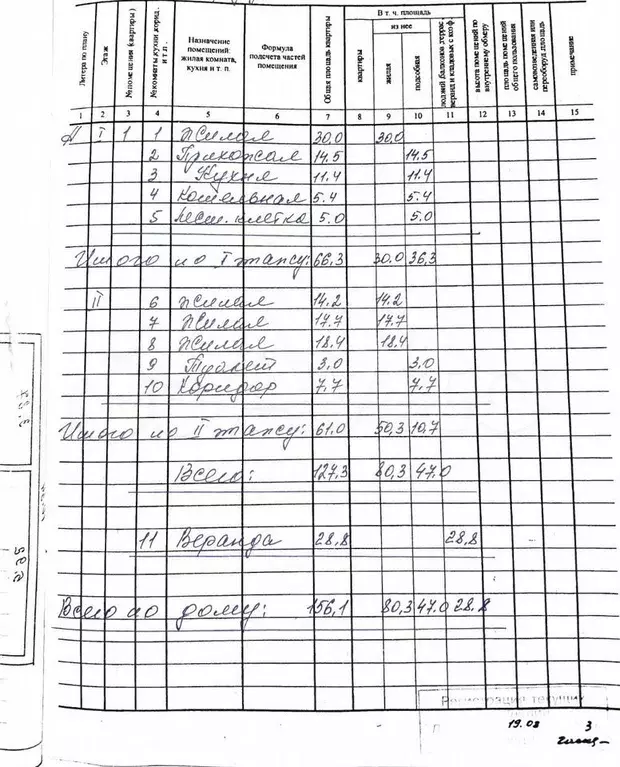 В т. ч. площадь
из нее
Литера по плану
Этаж
№ помещения (квартиры)
№ комнаты, кухни, корид. и т.п.
Назначение помещений: жилая комната, кухня и т. п.
Формула подсчета частей помещения
Общая площадь квартиры
квартиры
жилая
подсобная
лоджий, балконов, террас, веранд и кладовых с коэф.
высота помещений по внутреннему обмеру
площадь помещений общего пользования
самовозведенная или переоборуд. площадь
примечание
1 2 3 4 5 6 7 8 9 10 11 12 13 14 15
А I 1 1 Жилая 30.0 30.0
2 Прихожая 14.5 14.5
3 Кухня 11.4 11.4
4 Котельная 5.4 5.4
5 Лест. клетка 5.0 5.0
Итого по I этажу: 66,3 30.0 36,3
II 6 Жилая 14.2 14.2
7 Жилая 17.7 17.7
8 Жилая 18.4 18.4
9 Туалет 3,0 3,0
10 Коридор 7.7 7.7
Итого по II этажу: 61.0 50,3 10,7
Всего: 127,3 80,3 47.0
11 Веранда 28,8 28,8
Всего по дому: 156,1 80,3 47.0 28.8
19.08 3